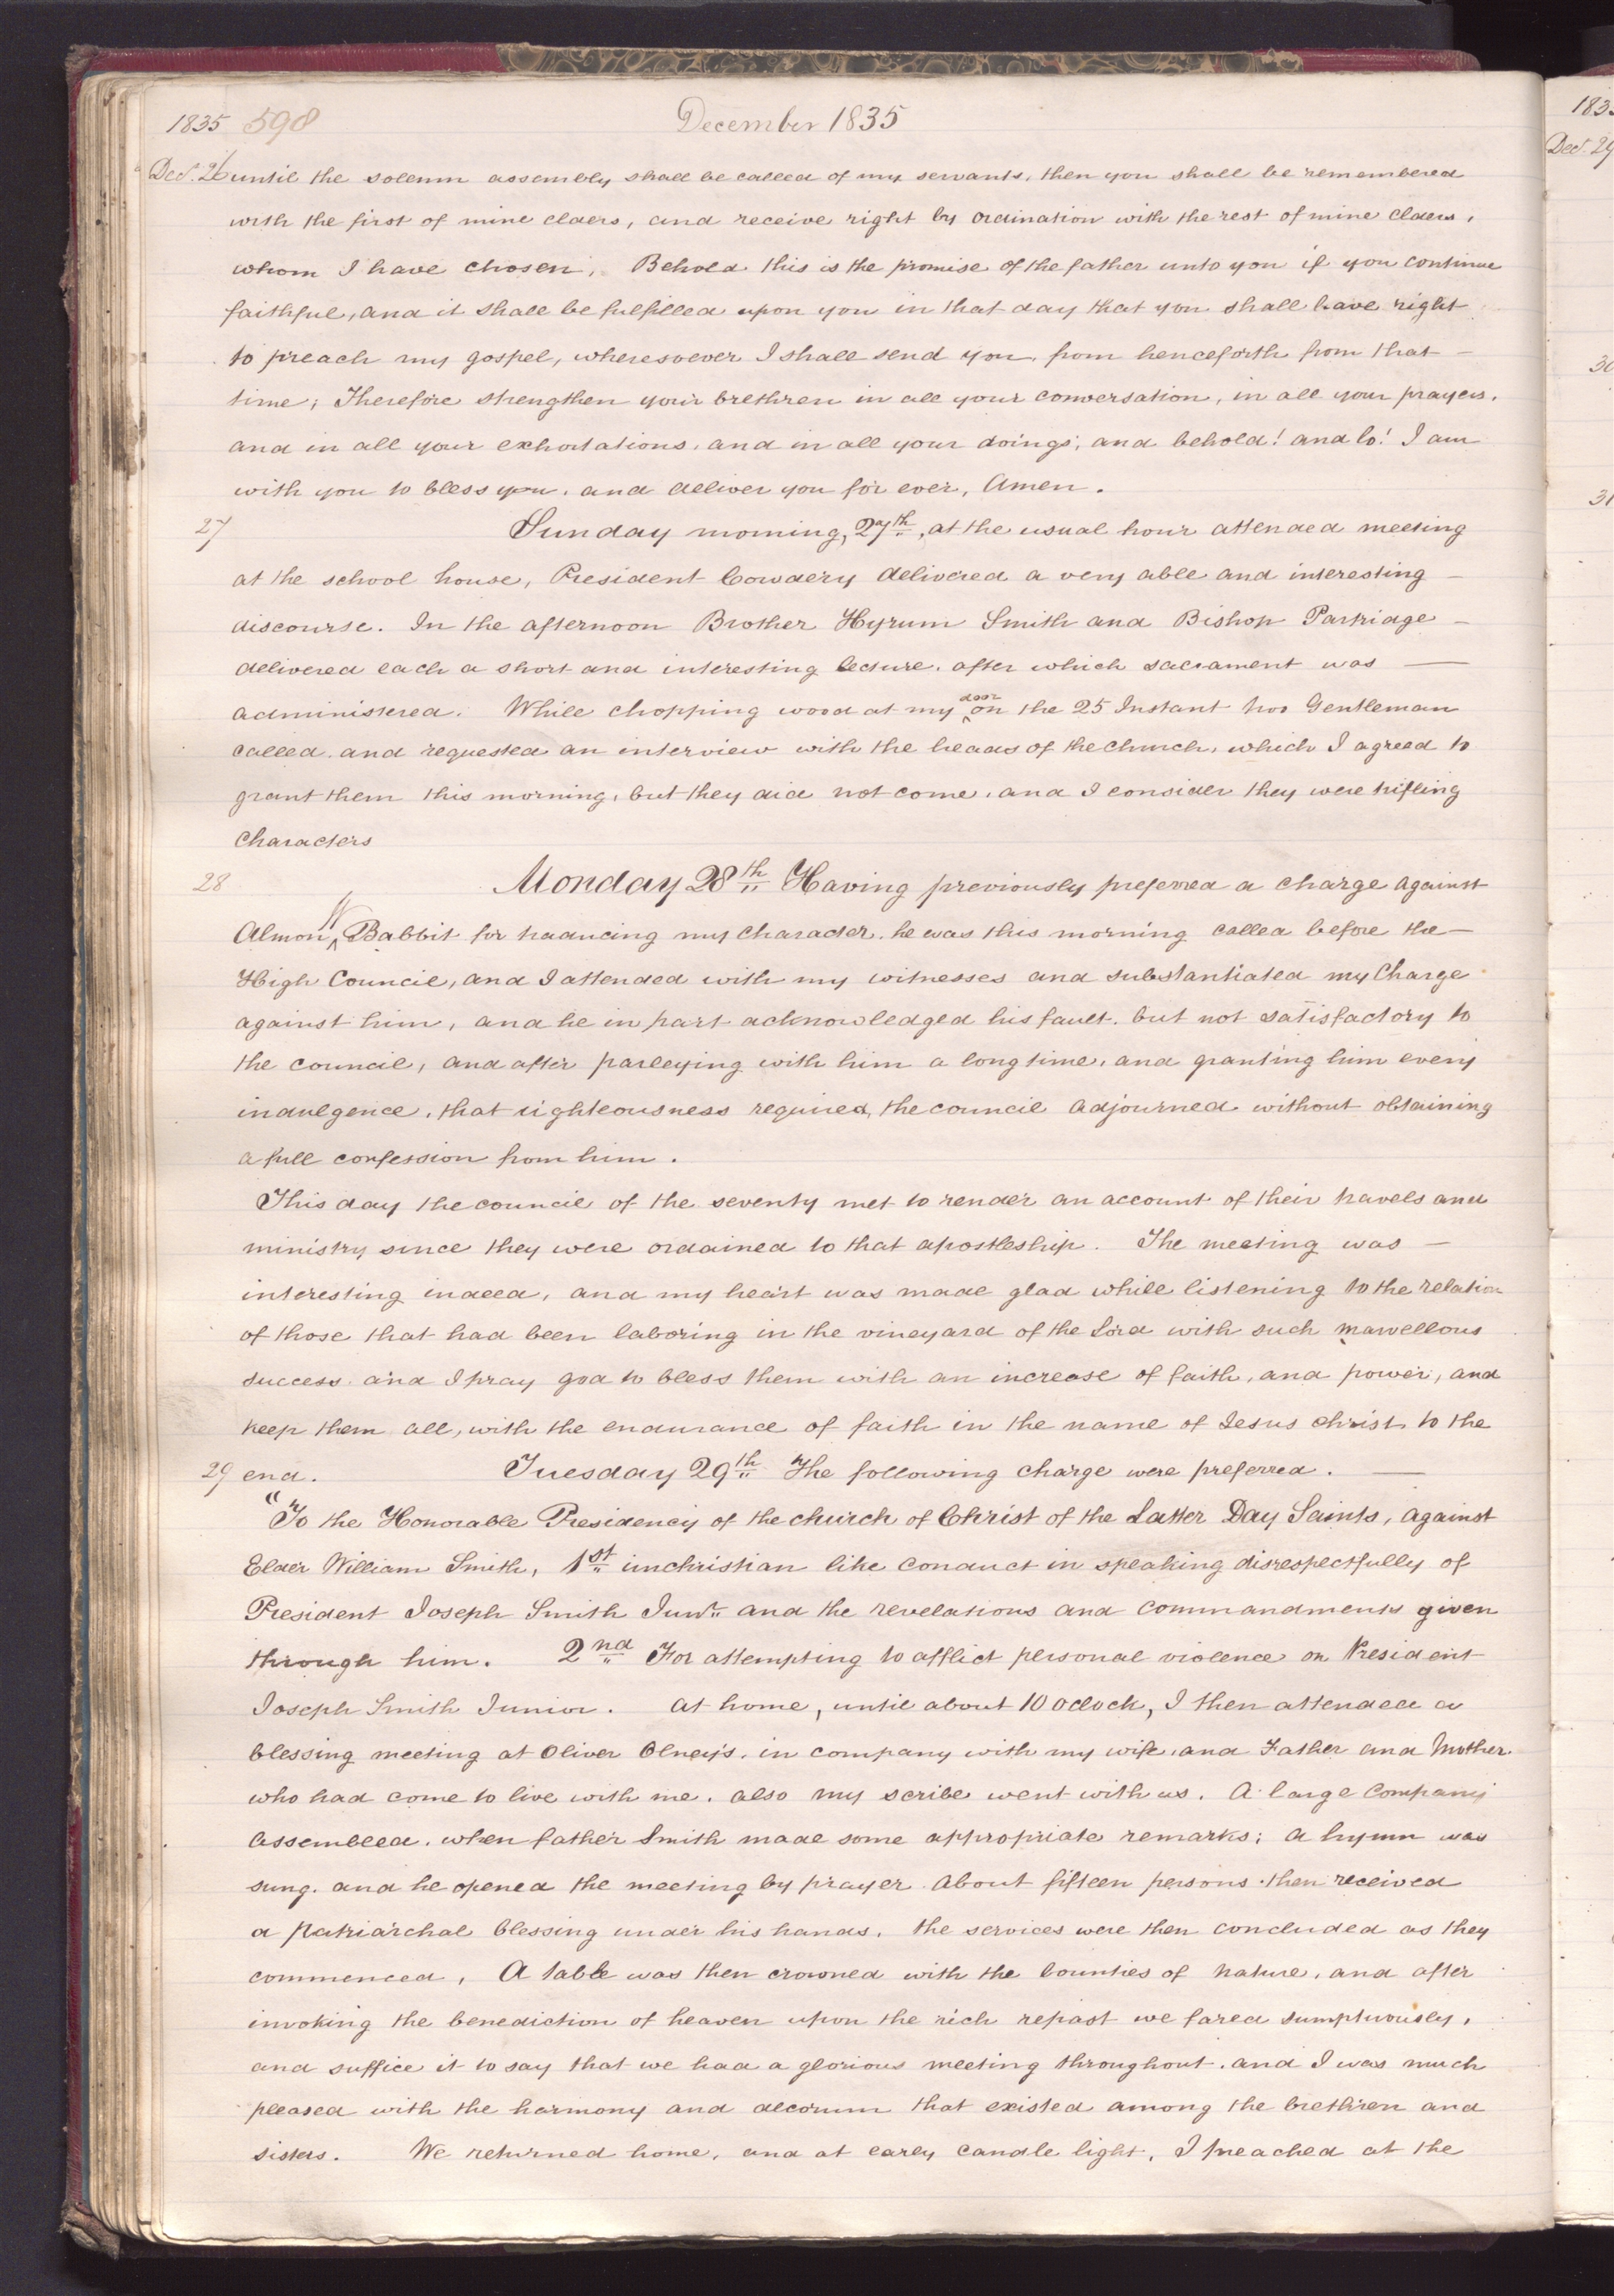 1835 598 December 1835
Dec. 26 until the solemn assembly shall be called of my servants, then you shall be remembered
with the first of mine elders, and receive right by ordination with the rest of mine elders,
whom I have chosen. Behold this is the promise of the father unto you if you continue
faithful, and it shall be fulfilled upon you in that day that you shall have right
to preach my gospel, wheresoever I shall send you, from henceforth from that —
time; Therefore strengthen your brethren in all your conversation, in all your prayers,
and in all your exhortations, and in all your doings; and behold! and lo! I am
with you to bless you, and deliver you for ever, Amen.
27 Sunday morning, 27th, at the usual hour attended meeting
at the school house, President Cowdery delivered a very able and interesting —
discourse. In the afternoon Brother Hyrum Smith and Bishop Partridge —
delivered each a short and interesting lecture, after which sacrament was —
administered. While chopping wood at my door on the 25 Instant two Gentleman
called, and requested an interview with the heads of the church, which I agreed to
grant them this morning, but they did not come, and I consider they were trifling
characters
28 Monday 28th Having previously preferred a charge against
Almon W Babbit for traducing my character, he was this morning called before the —
High Council, and I attended with my witnesses and substantiated my Charge
against him, and he in part acknowledged his fault, but not satisfactory to
the council, and after parleying with him a long time, and granting him every
indulgence, that righteousness required, the council adjourned without obtaining
a full confession from him.
This day the council of the seventy met to render an account of their travels and
ministry since they were ordained to that apostleship. The meeting was —
interesting indeed, and my heart was made glad while listening to the relation
of those that had been laboring in the vineyard of the Lord with such marvellous
success. and I pray god to bless them with an increase of faith, and power, and
keep them all, with the endurance of faith in the name of Jesus christ, to the
29 end. Tuesday 29th The following charge were preferred. —
"To the Honorable Presidency of the church of Christ of the Latter Day Saints, against
Elder William Smith, 1st unchristian like conduct in speaking disrespectfully of
President Joseph Smith Junr. and the revelations and commandments given
through him. 2nd For attempting to afflict personal violence on President
Joseph Smith Junior. At home, until about 10 oclock, I then attended a
blessing meeting at Oliver Olney's, in company with my wife, and Father and Mother
who had come to live with me. also my scribe went with us. A large company
assembled, when father Smith made some appropriate remarks; a hymn was
sung. and he opened the meeting by prayer. About fifteen persons then received
a patriarchal blessing under his hands. the services were then concluded as they
commenced, A table was then crowned with the bounties of nature, and after
invoking the benediction of heaven upon the rich repast we fared sumptuously,
and suffice it to say that we had a glorious meeting throughout. and I was much
pleased with the harmony and decorum that existed among the brethren and
sisters. We returned home, and at early candle light, I preached at the
183
Dec. 29
30
31